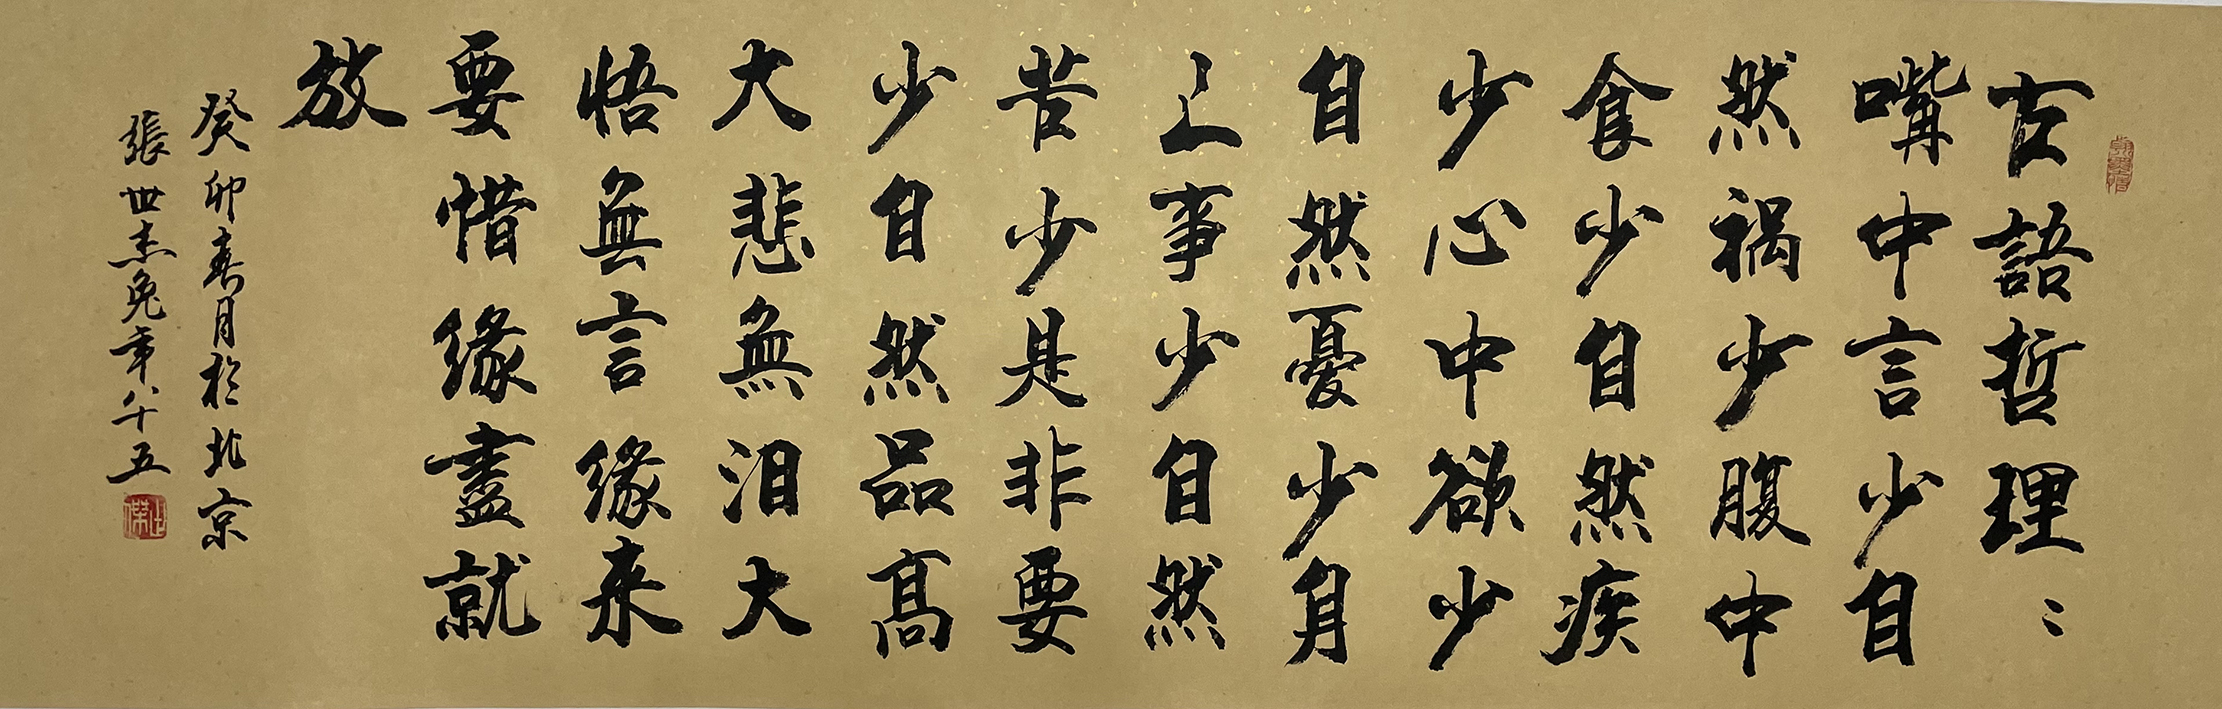 古語哲理:
嘴中言少自
然祸少腹中
食少自然疾
少心中欲少
自然憂少身
上事少自然
苦少是非要
少自然品高
大悲無泪大
悟無言缘来
要惜缘盡就
放
癸卯春月於北京
張世杰兔年八十五